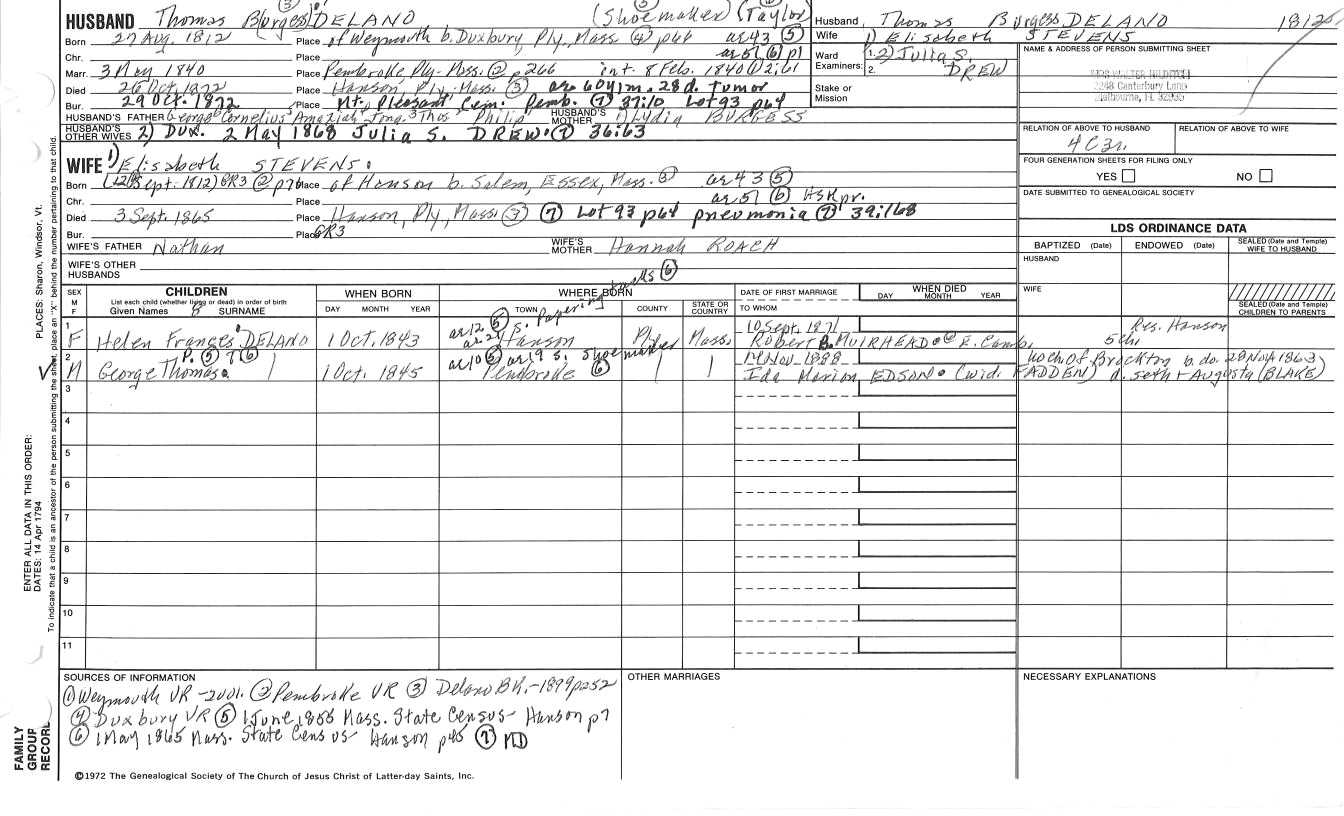 HUSBAND Thomas B(urges) DELANO (Shoemaker) (Taylor
Born 27 Aug. 1812 Place of Weymouth b. Duxbury, Ply., Mass ④ p64 ae 43 ⑤
Chr. ae 51 ⑥ p1
Marr. 3 May 1840 Place Pembroke, Ply. Mass. ② p266 int. 8 Feb. 1840 ① 2:61
Died 26 Oct. 1872 Place Hanson, Ply., Mass. ③ ae 60y 1m. 28d. Tumor
Bur. 29 Oct. 1872 Place Mt. Pleasant Cem. Pemb. ⑦ 37:10 Lot 93 p64
HUSBAND'S FATHER George Cornelius Amaziah Jona. Thos Philip HUSBAND'S MOTHER Lydia BURGESS
HUSBAND'S OTHER WIVES 2) Dux. 2 May 1868 Julia S. DREW. ⑦ 36:63
WIFE 1) Elisabeth STEVENS.
Born (12 Sept. 1812) GR3 ② p76 Place of Hanson b. Salem, Essex, Mass. ③ ae 43 ⑤
Chr. Place ae 51 ⑥ Hskpr.
Died 3 Sept. 1865 Place Hanson, Ply, Mass. ③ ⑦ Lot 93 p64 pneumonia ⑦ 39:168
Bur. Place GR3
WIFE'S FATHER Nathan WIFE'S MOTHER Hannah ROACH
WIFE'S OTHER HUSBANDS
Husband Thomas Burgess DELANO 1812
Wife 1) Elisabeth STEVENS
Ward 1. 2) Julia S.
Examiners: 2. DREW
Stake or Mission
NAME & ADDRESS OF PERSON SUBMITTING SHEET
2248 Canterbury Lane
Melbourne, Fl 32935
RELATION OF ABOVE TO HUSBAND RELATION OF ABOVE TO WIFE
4C3r.
FOUR GENERATION SHEETS FOR FILING ONLY
YES NO
DATE SUBMITTED TO GENEALOGICAL SOCIETY
LDS ORDINANCE DATA
BAPTIZED (Date) ENDOWED (Date) SEALED (Date and Temple) WIFE TO HUSBAND
HUSBAND
WIFE
SEALED (Date and Temple) CHILDREN TO PARENTS
SEX M F
CHILDREN
List each child (whether living or dead) in order of birth
Given Names SURNAME
WHEN BORN
DAY MONTH YEAR
WHERE BORN
TOWN COUNTY STATE OR COUNTRY
DATE OF FIRST MARRIAGE
TO WHOM
WHEN DIED
DAY MONTH YEAR
1 F Helen Frances DELANO 1 Oct. 1843 ae 12 ⑤ ae 21 S. Papering ⑥ Hanson Ply. Mass. 10 Sept. 1871 Robert B. MUIRHEAD @ E. Camb. 5 ch. Res. Hanson
2 M George Thomas. P. ⑤ T ⑥ 1 Oct. 1845 ae 10 ⑤ ae 19 S. Shoemaker ⑥ Pembroke 14 Nov. 1888 Ida Marion EDSON (wid. FADDEN) d. Seth + Augusta (BLAKE) no ch of Brockton b. do. 28 Nov 1863
3
4
5
6
7
8
9
10
11
SOURCES OF INFORMATION
① Weymouth VR -2001. ② Pembroke VR ③ Delano BK. -1899 p252
④ Duxbury VR ⑤ 1 June 1855 Mass. State Census- Hanson p7
⑥ 1 May 1865 Mass. State Census Hanson p45 ⑦ MD
OTHER MARRIAGES
NECESSARY EXPLANATIONS
©1972 The Genealogical Society of The Church of Jesus Christ of Latter-day Saints, Inc.
FAMILY GROUP RECORD
ENTER ALL DATA IN THIS ORDER:
DATES: 14 Apr 1794
PLACES: Sharon, Windsor, Vt.
To indicate that a child is an ancestor of the person submitting the sheet, place an "X" behind the number pertaining to that child.